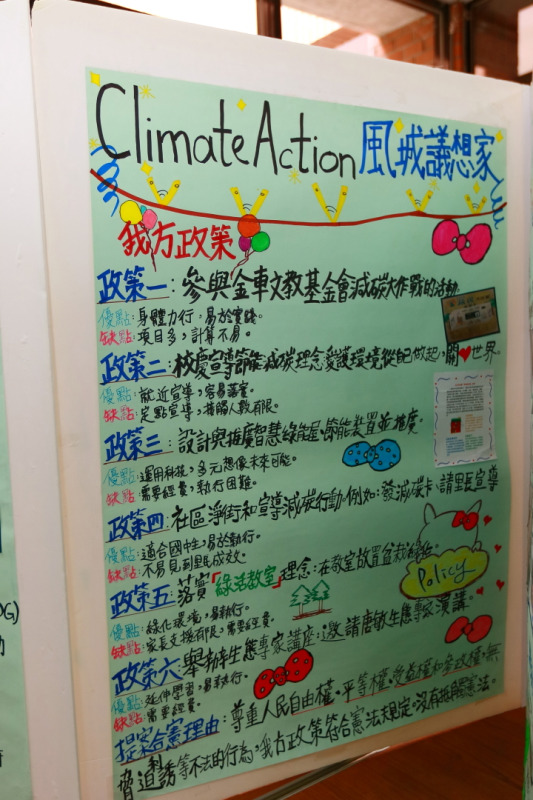 Climate Action 風城議想家
我方政策
政策一：參與金車文教基金會減碳大作戰的活動
優點：身體力行，易於實踐。
缺點：項目多，計算不易。
政策二：校慶宣導節能減碳理念，愛護環境從自己做起，關❤世界。
優點：就近宣導，容易落實。
缺點：定點宣導，接觸人數有限。
政策三：設計與推廣智慧綠能屋，節能裝置並推廣。
優點：運用科技，多元想像未來可能。
缺點：需要經費，執行困難。
政策四：社區淨街和宣導減碳行動，例如：發減碳卡、請里長宣導
優點：適合國中生，易於執行。
缺點：不易見到里民成效。
政策五：落實「綠活教室」理念：在教室放置盆栽
Policy
優點：綠化環境，易執行。
缺點：家長支援有限，需要經費。
政策六：舉辦生態專家講座：邀請唐敏生態專家演講。
優點：延伸學習，易執行。
缺點：需要經費。
提案合憲理由：尊重人民自由權、平等權、受益權和參政權，無
脅迫利誘等不法的行為，我方政策符合憲法規定，沒有牴觸憲法。